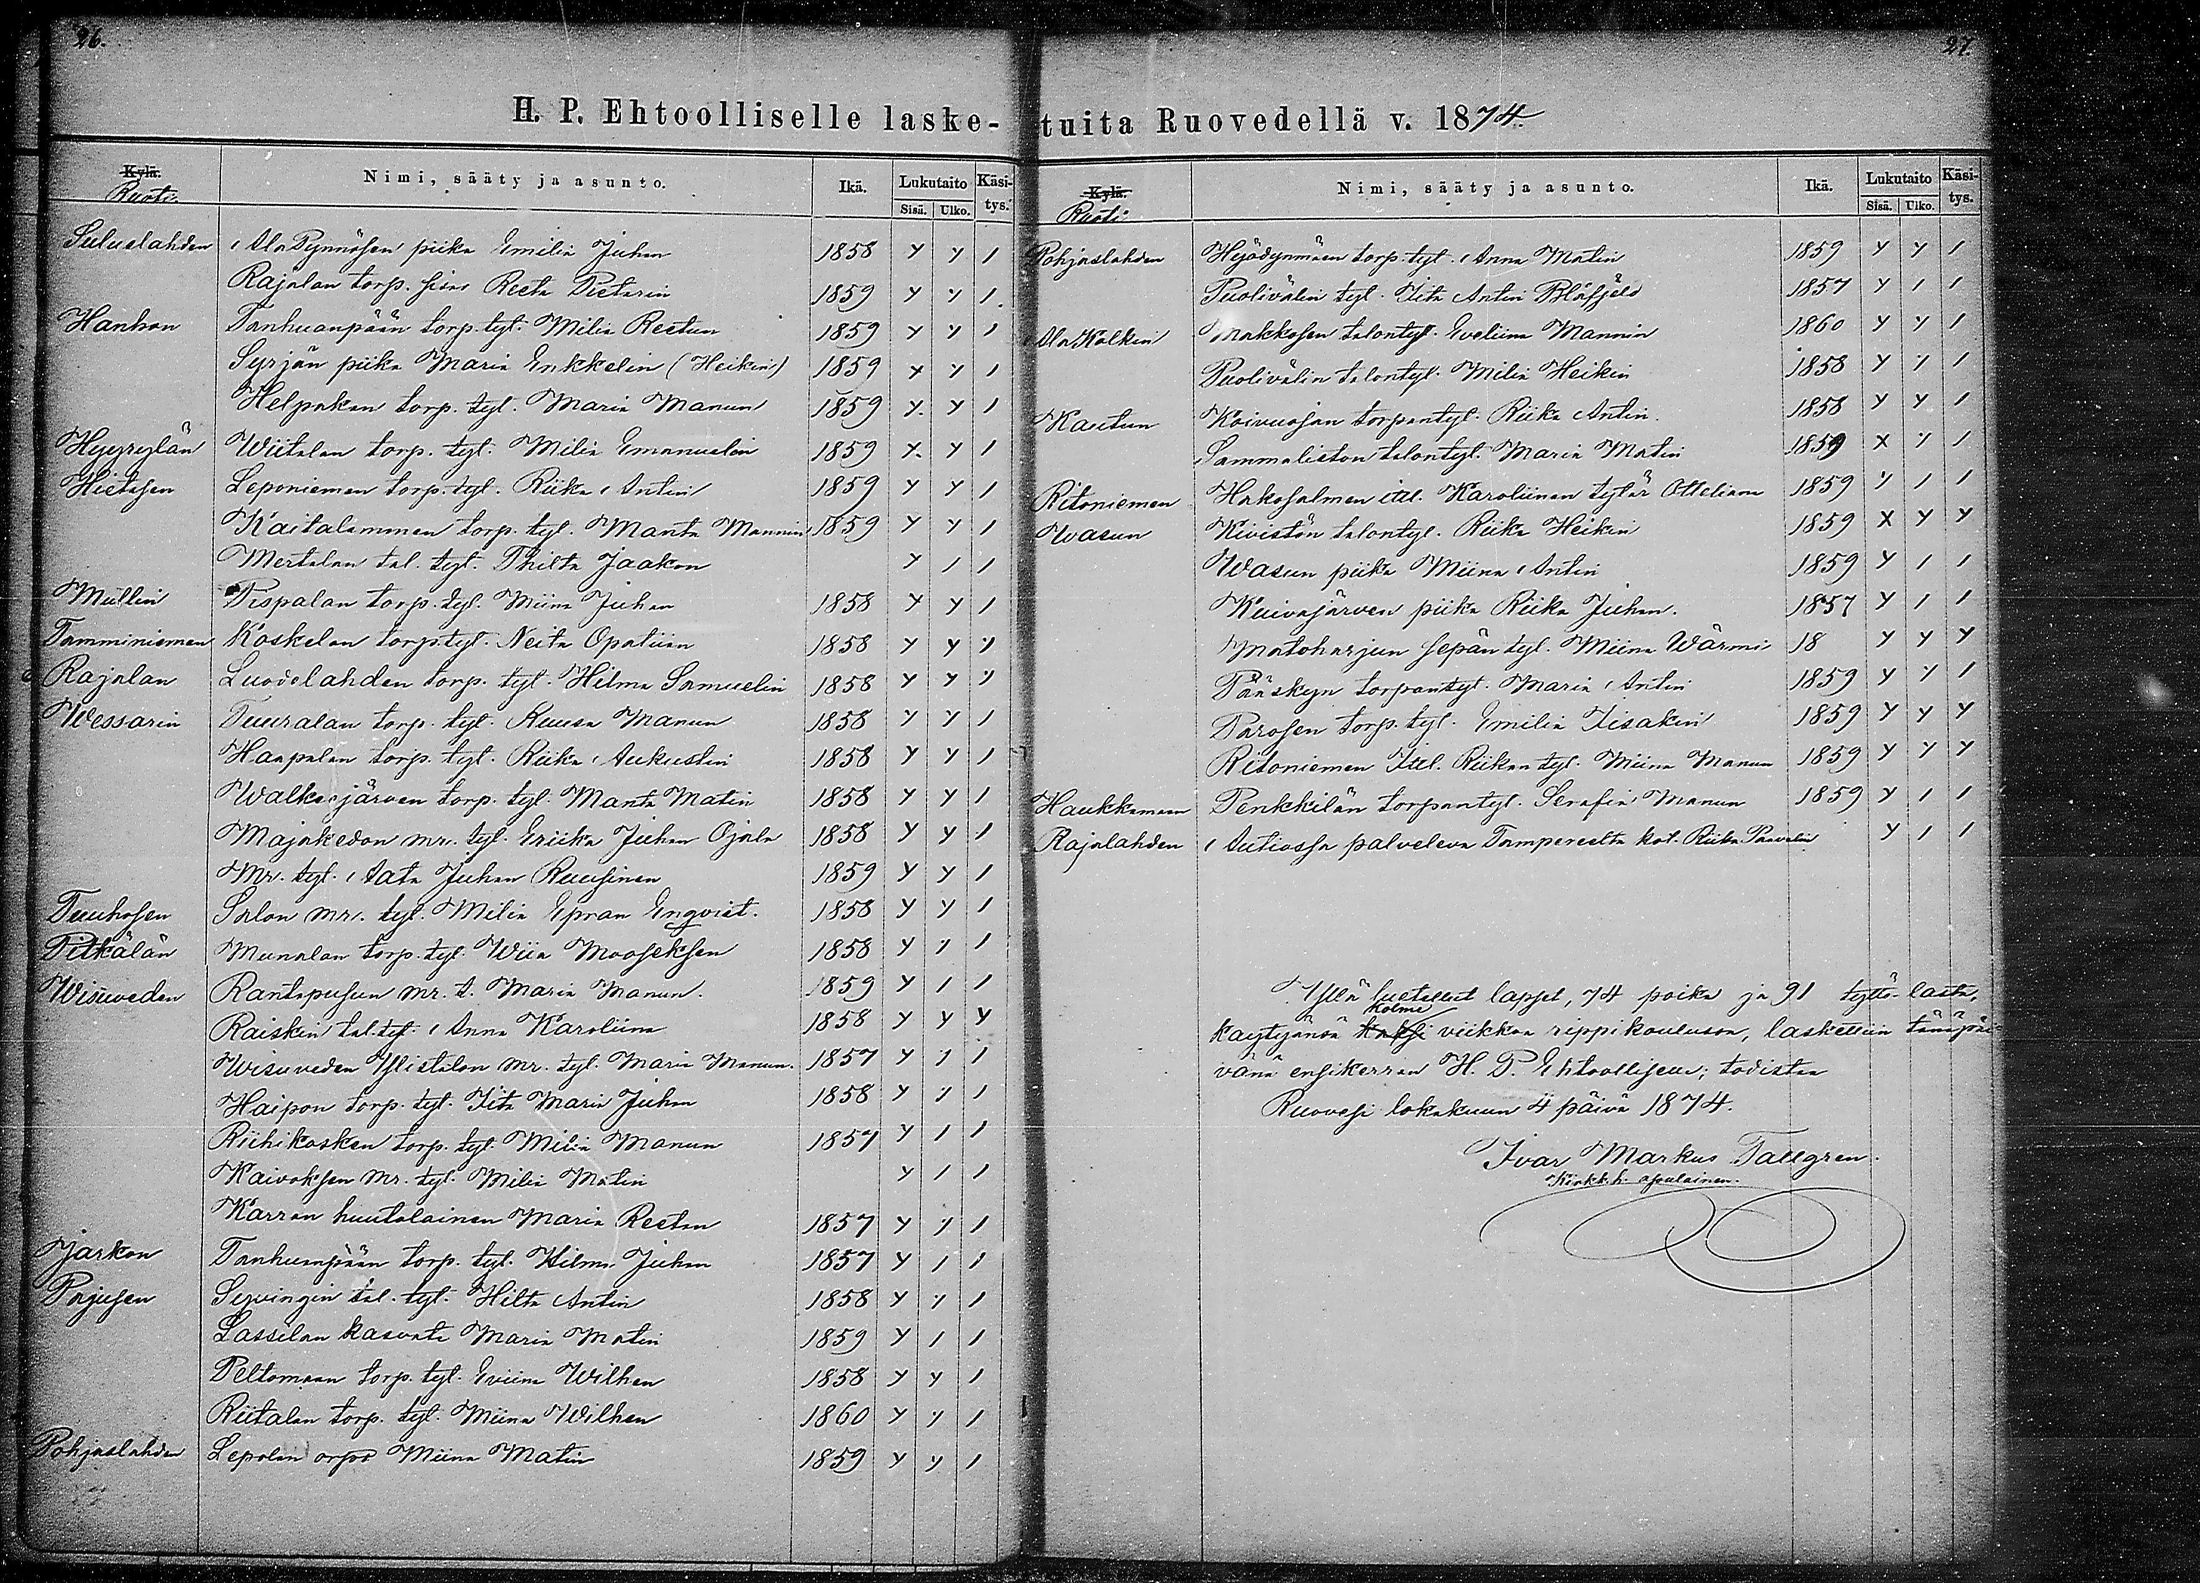 26.
H. P. Ehtoolliselle laske-
Kylä.
Ruoti.
Nimi, sääty ja asunto.
Ikä.
Lukutaito
Sisä. Ulko.
Käsi-
tys.
Suluslahden Ala Pynnösen piika Emilia Juhan 1858 y y /
Rajalan torp. sisar Reeta Pietarin 1859 y y /
Hanhon Tanhuanpään torp. tyt. Milia Reetun 1859 y y /
Syrjän piika Maria Enkkelin (Heikin) 1859 x y /
Helpakan torp. tyt. Maria Manun 1859 y y /
Hyyrylän Wiitalan torp. tyt. Milia Emanuelin 1859 x y /
Hietasen Leponiemen torp. tyt. Riika Antin 1859 y y /
Kaitalammen torp. tyt. Manta Mannin 1859 y y /
Mertalan tal. tyt. Thilta Jaakon y / /
Müllin Tispalan torp. tyt. Miina Juhan 1858 x y /
Tamminiemen Koskelan torp. tyt. Neita Opatiian 1858 y y y
Rajalan Luodelahden torp. tyt. Hilma Samuelin 1858 y y y
Wessarin Tuuralan torp. tyt. Ruusa Manun 1858 y y /
Haapalan torp. tyt. Riika Aukustin 1858 y y /
Walkeajärven torp. tyt. Manta Matin 1858 y y /
Majakedon mr. tyt. Eriika Juhan Ojala 1858 y y /
Mr. tyt. Aata Juhan Ruusinen 1859 y y /
Tuuhosen Salon mr. tyt. Milia Epran Enqvist. 1858 y y /
Pitkälän Munalan torp. tyt. Wiia Mooseksen 1858 y y /
Wisuveden Rantapusun mr. t. Maria Manun. 1859 y / /
Raiskin tal. tyt. Anna Karoliina 1858 y y y
Wisuveden Ylistalon mr. tyt. Maria Manun. 1857 y y /
Haipon torp. tyt. Iita Maria Juhan 1858 y y /
Riihikosken torp. tyt. Milia Manun 1857 y / /
Kaivoksen mr. tyt. Milia Matin y / /
Karran huutolainen Maria Reetan 1857 y y /
Jarkon Tanhuanpään torp. tyt. Hilma Juhan 1857 y / /
Pajusen Syvingin tal. tyt. Hilta Antin 1858 y y /
Lassilan kasvatti Maria Matin 1859 y / /
Peltomaan torp. tyt. Eviina Wilhen 1858 y y /
Riitalan torp. tyt. Miina Wilhen 1860 y y /
Pohjaslahden Lepolan orpo Miina Matin 1859 y y /
27.
tuita Ruovedellä v. 1874.
Kylä.
Ruoti
Nimi, sääty ja asunto.
Ikä.
Lukutaito
Sisä. Ulko.
Käsi-
tys.
Pohjaslahden Hyödynmäen torp. tyt. Anna Matin 1859 y y /
Puolivälin tyt. Iita Antin Blåfjeld 1857 y / /
Ala Kalkin Makkosen talontyt. Eveliina Mannin 1860 y y /
Puolivälin talontyt. Milia Heikin 1858 y y /
Kautun Koivuojan torpantyt. Riika Antin. 1858 y y /
Sammaliston talontyt. Maria Matin 1859 x y /
Ritoniemen Hakosalmen itt. Karoliinan tytär Otteliana 1859 y / /
Wasun Kivistön talontyt. Riika Heikin 1859 x y y
Wasun piika Miina Antin 1859 y / /
Kuivajärven piika Riika Juhan. 1857 y / /
Matoharjun sepän tyt. Miina Wärmi 18 y y y
Pääskyn torpantyt. Maria Antin 1859 y y /
Parosen torp. tyt. Emilia Iisakin 1859 y y y
Ritoniemen Itt. Riikan tyt. Miina Manun 1859 y y y
Haukkamaan Penkkilän torpantyt. Serafia Manun 1859 y / /
Rajalahden Autiossa palveleva Tampereelta kot. Riika Paavalin y / /
Yllä luetellut lapset, 74 poika ja 91 tyttö-lasta,
kolme
käytyänsä kaksi viikkoa rippikoulussa, laskettiin tänäpäi-
vänä ensikerran H. P. Ehtoolliseen; todistaa
Ruovesi lokakuun 4 päivä 1874.
Ivar Markus Tallgren.
Kirkk.h. apulainen.